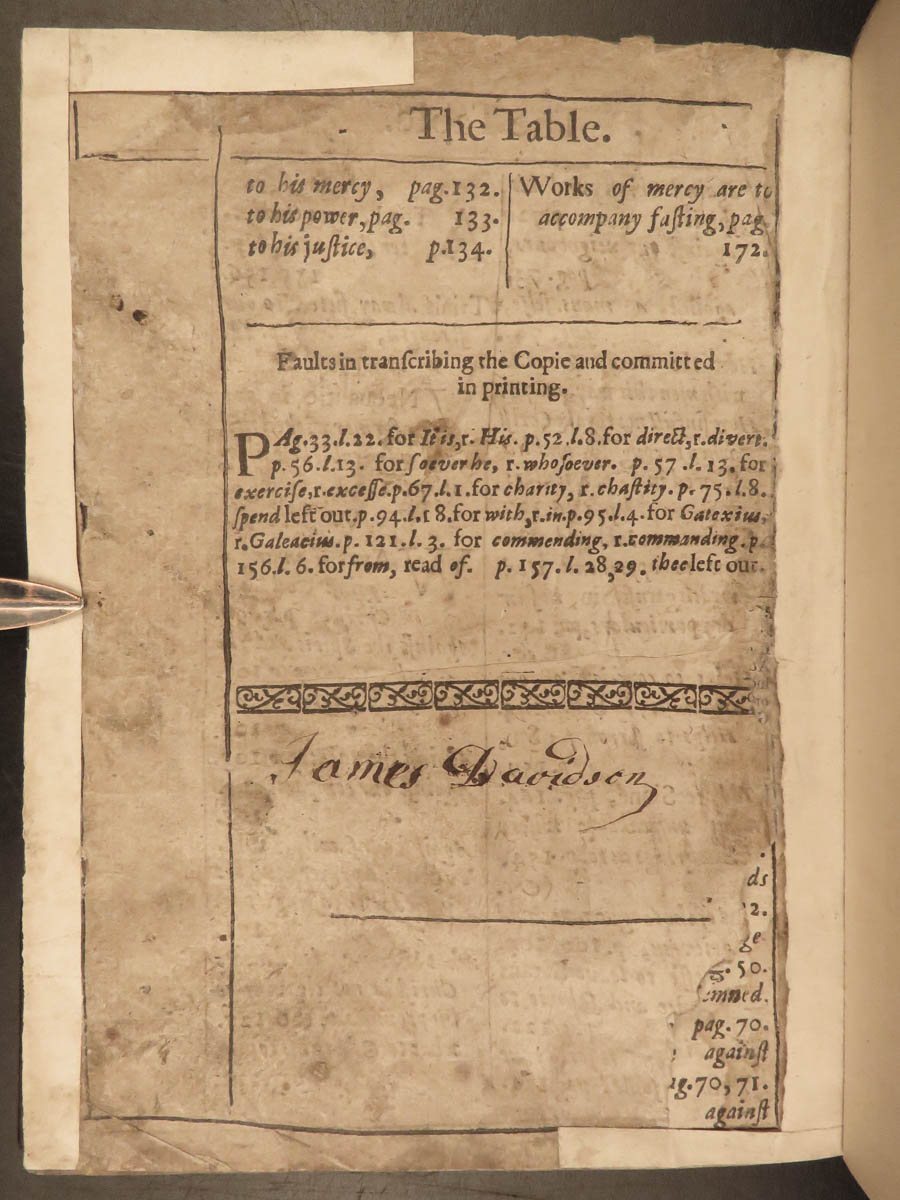 The Table.
to his mercy, pag.132.
to his power, pag. 133.
to his juſtice, p.134.
Works of mercy are to
accompany faſting, pag.
172.
Faults in tranſcribing the Copie and committed
in printing.
PAg.33.l.22. for It is, r. His. p.52.l.8. for direct, r. divert.
p.56.l.13. for ſoever he, r. whoſoever. p. 57 .l. 13. for
exerciſe, r. exceſſe. p.67.l.1. for charity, r. chaſtity. p. 75. l.8.
ſpend left out. p.94.l.18. for with, r. in. p.95.l.4. for Gatexius,
r. Galeacius. p. 121. l. 3. for commending, r. commanding. p.
156.l. 6. for from, read of. p. 157. l. 28,29. thee left out.
James Davidson
ds
2.
ge
g. 50.
emned.
pag. 70.
againſt
ag.70, 71.
againſt